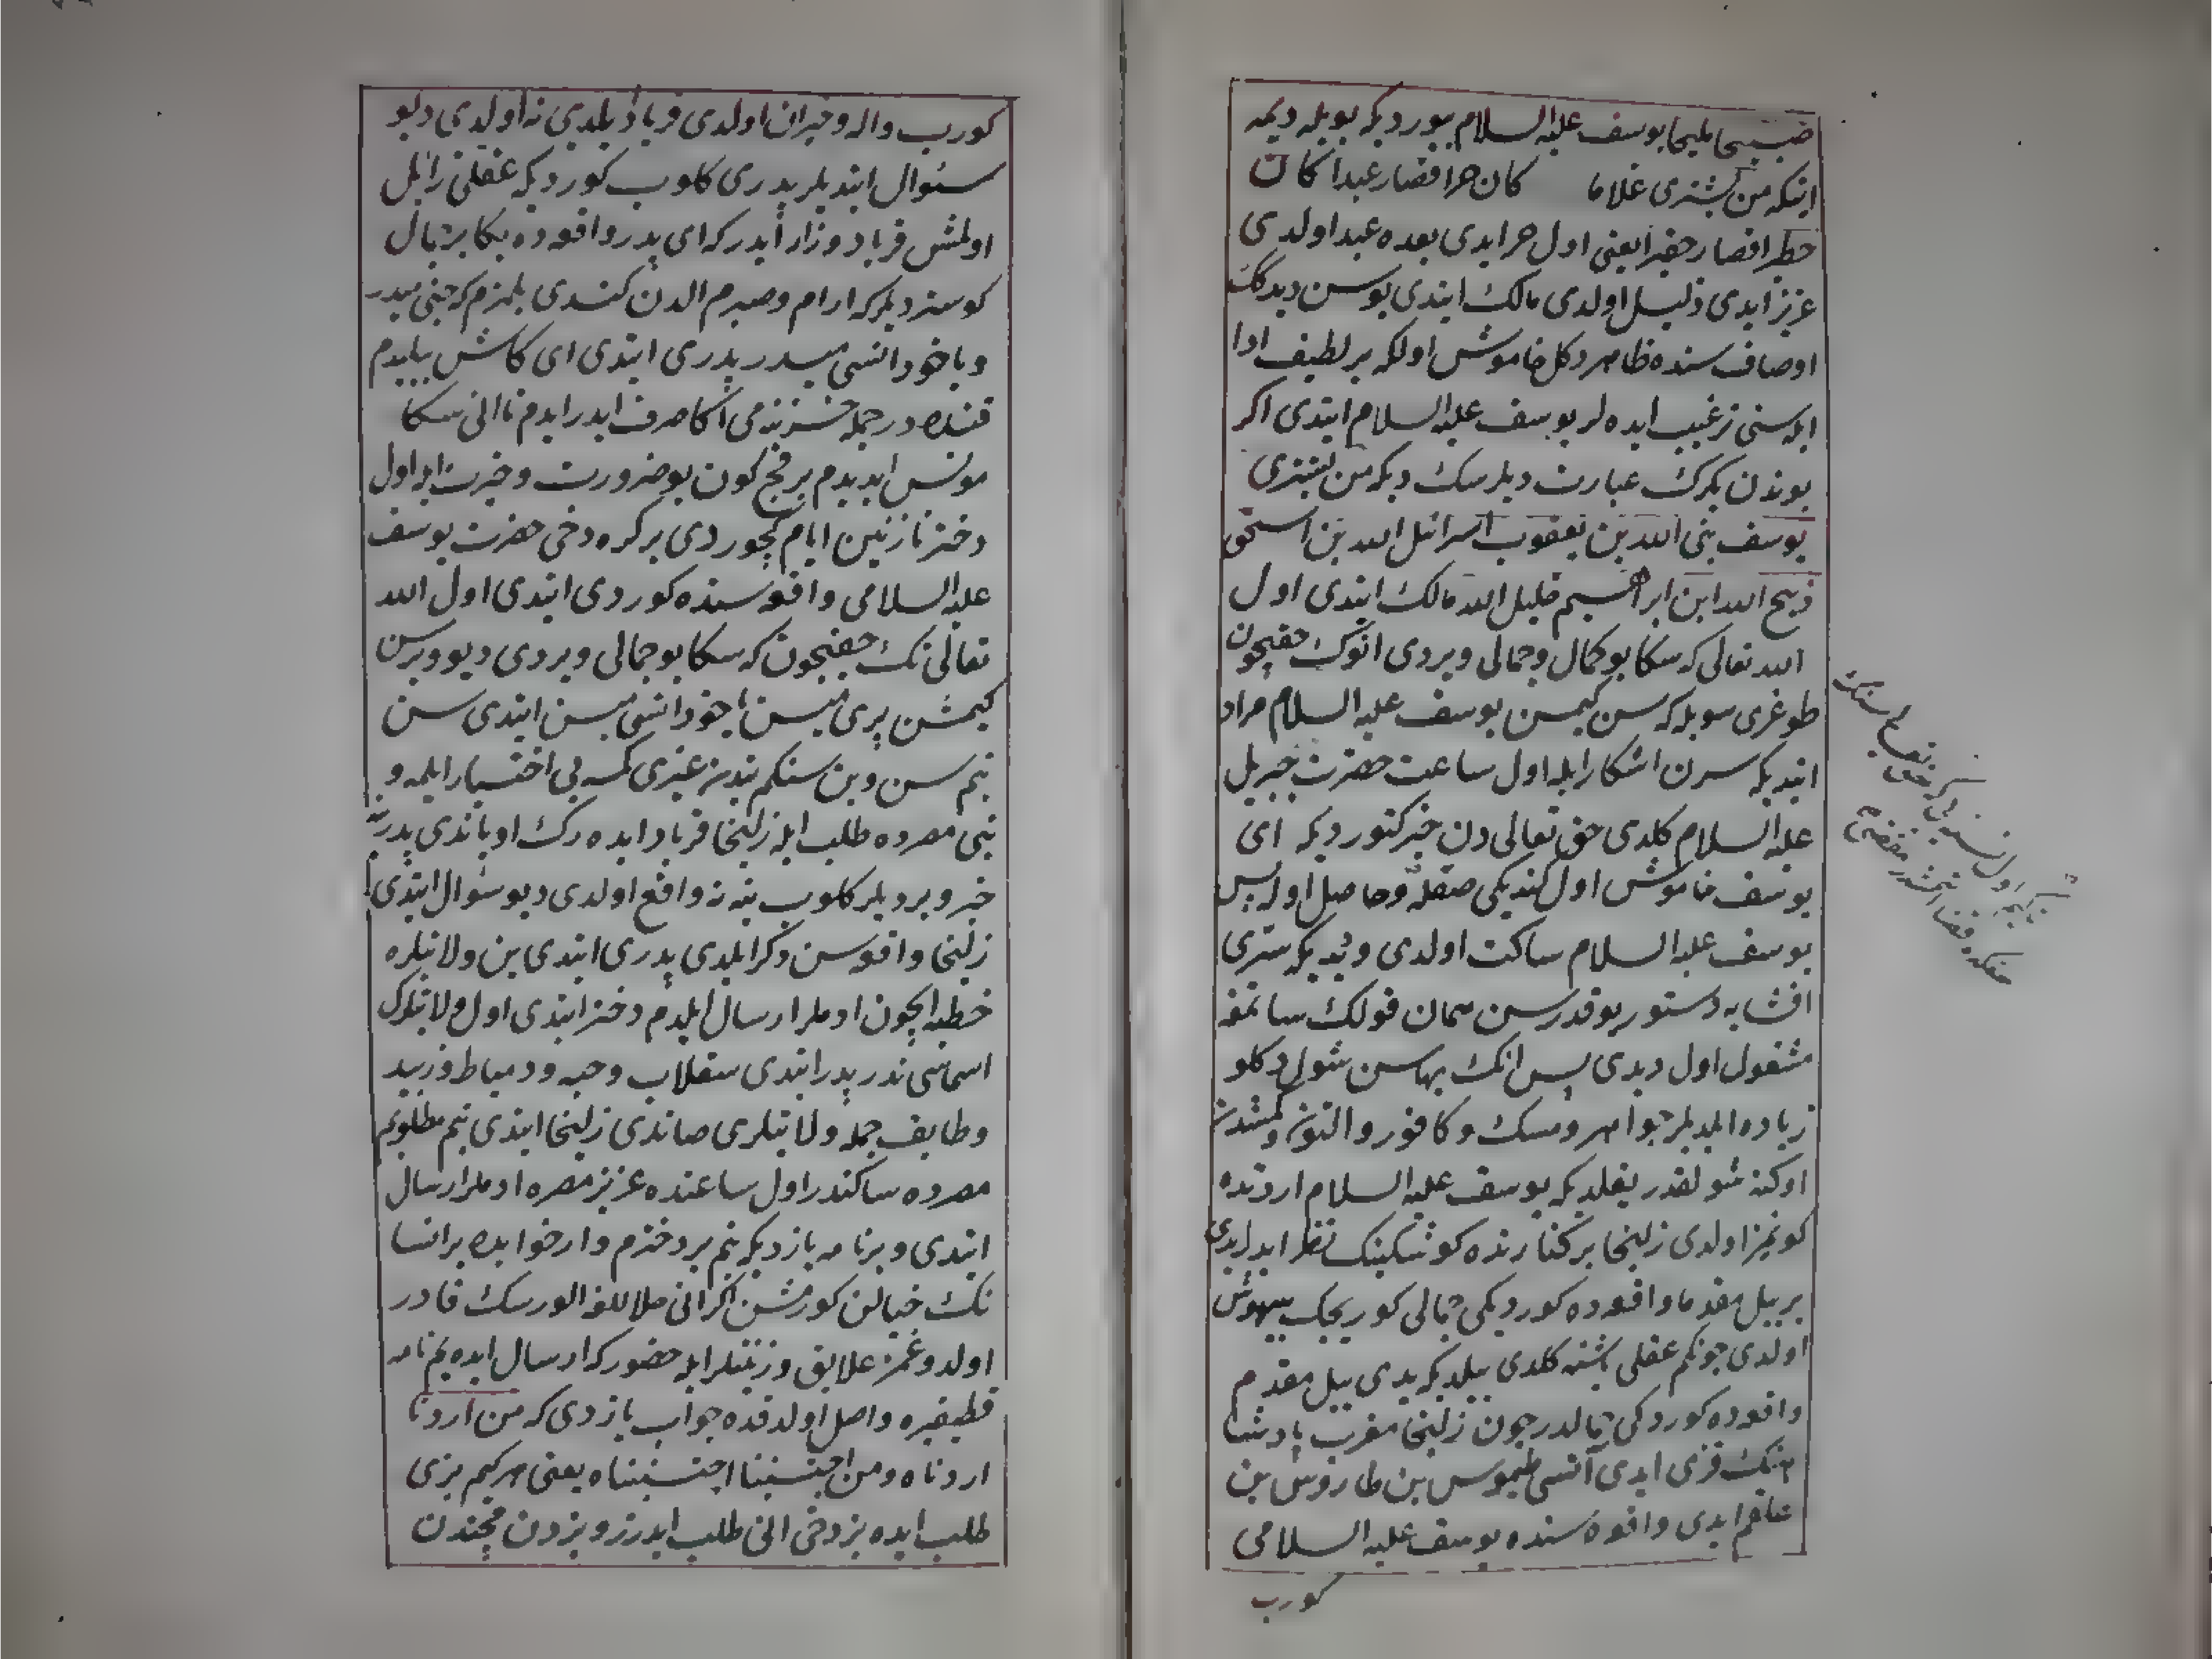 صبیحا ملیحا یوسف علیه السلام بیوردیکه بویله دیمه
ایتکه من یشتری غلاما کان حرا فصار عبدا کان
خطیرا فصار حقیرا یعنی اول حر ایدی بعده عبد اولدی
عزیز ایدی ذلیل اولدی مالک ایتدی بو سن دیدکک
اوصاف سنده ظاهر دکل خاموش اولکه بر لطیف ادا
ایله سنی ترغیب ایده لر یوسف علیه السلام ایتدی اکر
بوندن یکرک عبارت دیلرسک دیکه من یشتری
یوسف نبی الله بن یعقوب اسرائیل الله بن اسحق
ذبیح الله ابن ابراهیم خلیل الله مالک ایتدی اول
الله تعالی که سکا بو کمال و جمالی ویردی انوک حقیچون
طوغری سویله که سن کیمسن یوسف علیه السلام مراد
ایتدیکه سرن اشکارا ایله اول ساعت حضرت جبریل
علیه السلام کلدی حق تعالی دن خبر کتوردیکه ای
یوسف خاموش اول
یوسف علیه السلام ساکت اولدی ودیدیکه ستری
افشایه دستور یوقدر سن همان قولک صاتمغه
مشغول اول دیدی پس انک بهاسن شول دکلو
زیاده ایلدیلر جواهر و مسک و کافور و التون و کمشدن
اوکنه شو لقدر یغلدیکه یوسف علیه السلام اردنده
کونمز اولدی زلیخا بر کنارنده کوشکینک نظر ایدرایدی
بر ییل مقدما واقعه ده کوردیکی جمالی کوریجک بیهوش
اولدی چونکم عقلی باشنه کلدی بیلدیکه یدی ییل مقدم
واقعه ده کوردکی جمالدر چون زلیخا مغرب پادشا
هنک قزی ایدی آتسی طیموس بن طاروش بن
ایدی واقعه سنده یوسف علیه السلامی
کورب
کورب واله و حیران اولدی فریاد ایلدی نه اولدی دیو
سئوال ایتدیلر پدری کلوب کوردیکه عقلی زائل
اولمش فریاد و زار ایدر که ای پدر واقعه ده بکا بر جمال
کوستردیلر که ارام و صبرم الدن کتدی بلمزم که جنی میدر
و یا خود انسی میدر پدری ایتدی ای کاش بیلیدم
قنده در جمله خزینه می اکا صرف ایدر ایدم تا انی سکا
مونس ایدیدم بر قچ کون بو ضرورت و حیرت ایله اول
دختر نازنین ایام کچوردی بر کره دخی حضرت یوسف
علیه السلامی واقعه سنده کوردی ایتدی اول الله
تعالی نک حقیچون که سکا بو جمالی ویردی دیو ویر سن
کیمسن پری میسن یا خود انسی میسن ایتدی سن
بنم سن و بن سنکم بندن غیری کمسه یی اختیار ایلمه و
بنی مصرده طلب ایله زلیخا فریاد ایده رک اویاندی پدرینه
خبر ویردیلر کلوب ینه نه واقع اولدی دیو سئوال ایتدی
زلیخا واقعه سن ذکر ایلدی پدری ایتدی بن ولایتلره
خطبه ایچون ادملر ارسال ایلدم دختر ایتدی اول ولایتلرک
اسماسی ندر پدر ایتدی سقلاب و حبه و دمیاط و زبید
و طایف جمله ولایتلری صاندی زلیخا ایتدی بنم مطلوبم
مصرده ساکندر اول ساعتده عزیز مصره ادملر ارسال
ایتدی و بر نامه یازدیکه بنم بر دخترم وار خوابده بر انسا
نک خیالن کورمشن اکر انی حلاللغه الورسک قادر
اولدوغمز علایق و زینتلر ایله حضورکه ارسال ایده یم نامه
قطیفیره واصل اولدقده جواب یازدی که من ارادنا
اردناه و من اجتنبنا اجتنبناه یعنی هر کیم بزی
طلب ایده بز دخی انی طلب ایدرز و بزدن قچندن